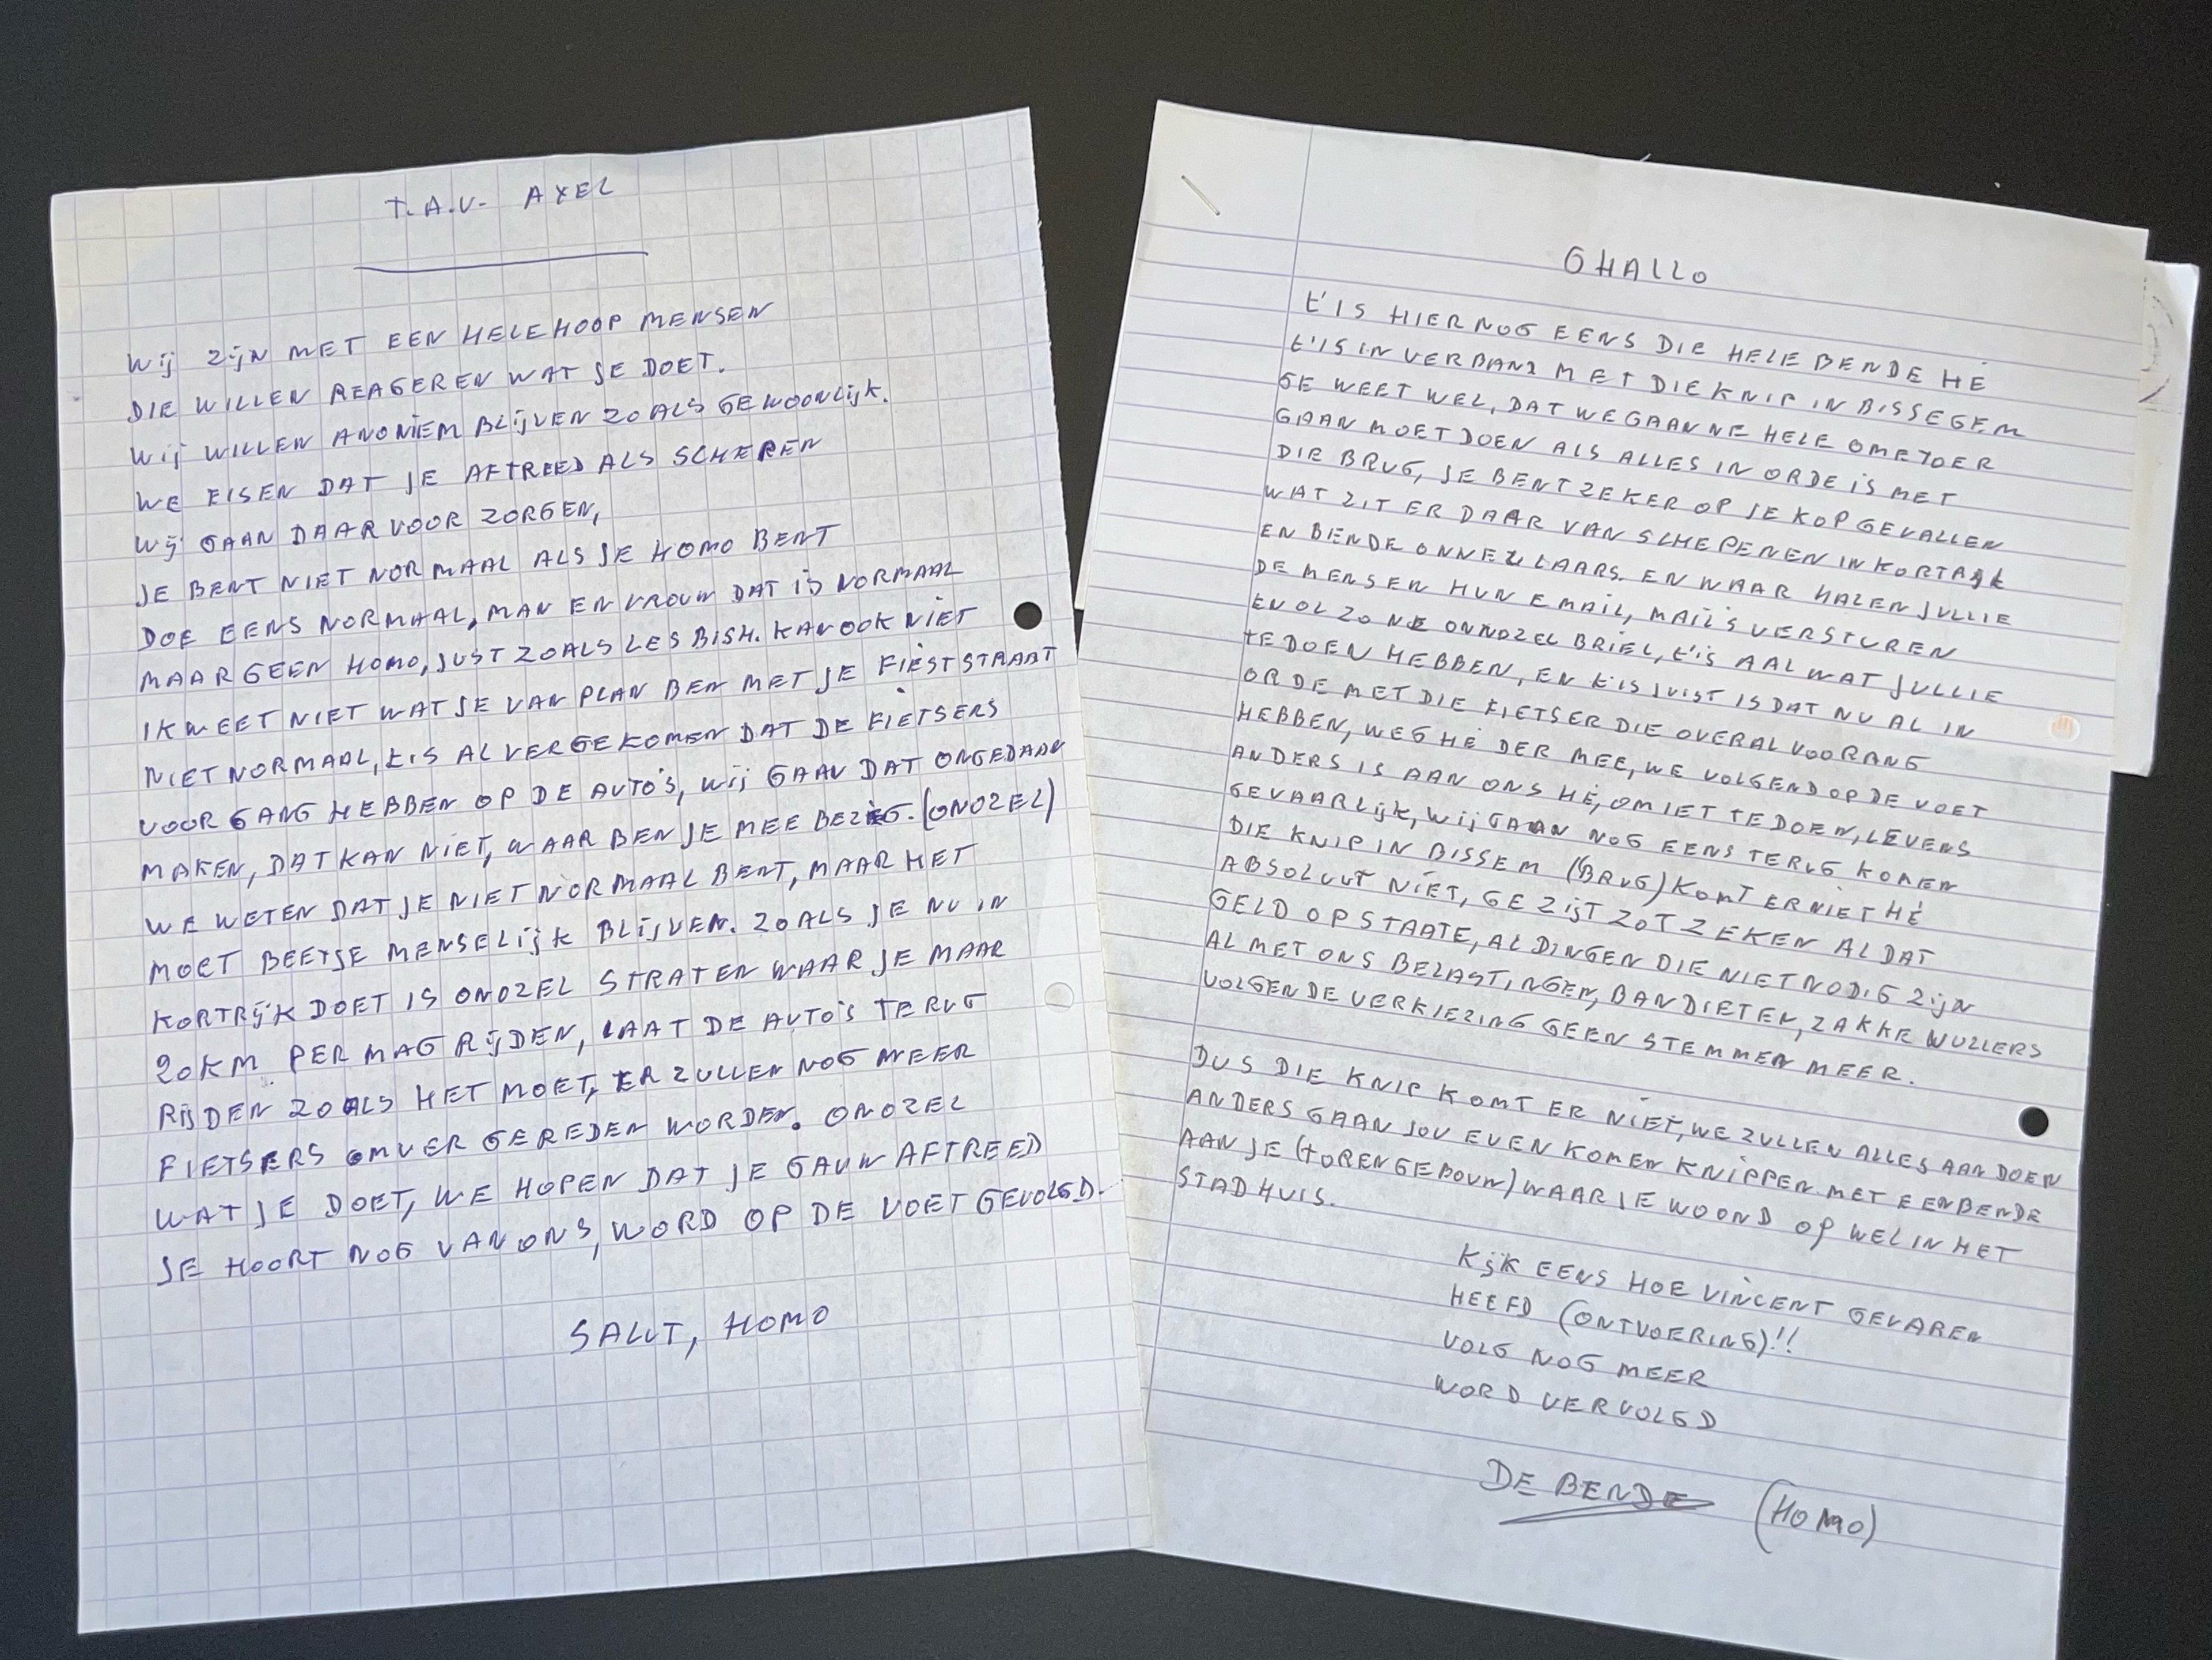 T.A.V. AXEL
WIJ ZIJN MET EEN HELE HOOP MENSEN
DIE WILLEN REAGEREN WAT JE DOET.
WIJ WILLEN ANONIEM BLIJVEN ZOALS GEWOONLIJK.
WE EISEN DAT JE AFTREED ALS SCHEPEN
WIJ GAAN DAAR VOOR ZORGEN,
JE BENT NIET NORMAAL ALS JE HOMO BENT
DOE EENS NORMAAL, MAN EN VROUW DAT IS NORMAAL
MAAR GEEN HOMO, JUST ZOALS LESBISH. KAN OOK NIET
IK WEET NIET WAT JE VAN PLAN BEN MET JE FIESTSTRAAT
NIET NORMAAL, T.IS AL VER GEKOMEN DAT DE FIETSERS
VOORGANG HEBBEN OP DE AUTO'S, WIJ GAAN DAT ONGEDAAN
MAKEN, DAT KAN NIET, WAAR BEN JE MEE BEZIG. (ONOZEL)
WE WETEN DAT JE NIET NORMAAL BENT, MAAR HET
MOET BEETJE MENSELIJK BLIJVEN. ZOALS JE NU IN
KORTRIJK DOET IS ONOZEL STRATEN WAAR JE MAAR
20KM PER MAG RIJDEN, LAAT DE AUTO'S TERUG
RIJDEN ZOALS HET MOET, ER ZULLEN NOG MEER
FIETSERS OMVER GEREDEN WORDEN. ONOZEL
WAT JE DOET, WE HOPEN DAT JE GAUW AFTREED
JE HOORT NOG VAN ONS, WORD OP DE VOET GEVOLGD.
SALUT, HOMO
GHALLO
T'IS HIER NOG EENS DIE HELE BENDE HE
T'IS IN VERBAND MET DIE KNIP IN BISSEGEM
GE WEET WEL, DAT WE GAAN NE HELE OMETOER
GAAN MOET DOEN ALS ALLES IN ORDE IS MET
DIE BRUG, JE BENT ZEKER OP JE KOP GEVALLEN
WAT ZIT ER DAAR VAN SCHEPENEN IN KORTRIJK
EN BENDE ONNEZLAARS. EN WAAR HALEN JULLIE
DE MENSEN HUN EMAIL, MAIL'S VERSTUREN
EN OL ZO NE ONNOZEL BRIEL, T'IS AAL WAT JULLIE
TE DOEN HEBBEN, EN T'IS JUIST IS DAT NU AL IN
ORDE MET DIE FIETSER DIE OVERAL VOORANG
HEBBEN, WEG HE DER MEE, WE VOLGEND OP DE VOET
ANDERS IS AAN ONS HE, OM IET TE DOEN, LEVENS
GEVAARLIJK, WIJ GAAN NOG EENS TERUG KOMEN
DIE KNIP IN BISSEM (BRUG) KOMT ER NIET HÉ
ABSOLUUT NIET, GE ZIJT ZOT ZEKEN AL DAT
GELD OP STAATE, AL DINGEN DIE NIET NODIG ZIJN
AL MET ONS BELASTINGEN, BANDIETEN, ZAKKE WULLERS
VOLGENDE VERKIEZING GEEN STEMMEN MEER.
DUS DIE KNIP KOMT ER NIET, WE ZULLEN ALLES AAN DOEN
ANDERS GAAN JOU EVEN KOMEN KNIPPEN MET EEN BENDE
AAN JE (TORENGEBOUW) WAAR JE WOOND OP WEL IN HET
STADHUIS.
KIJK EENS HOE VINCENT GEVAREN
HEEFD (ONTVOERING)!!
VOLG NOG MEER
WORD VERVOLGD
DE BENDE (HOMO)